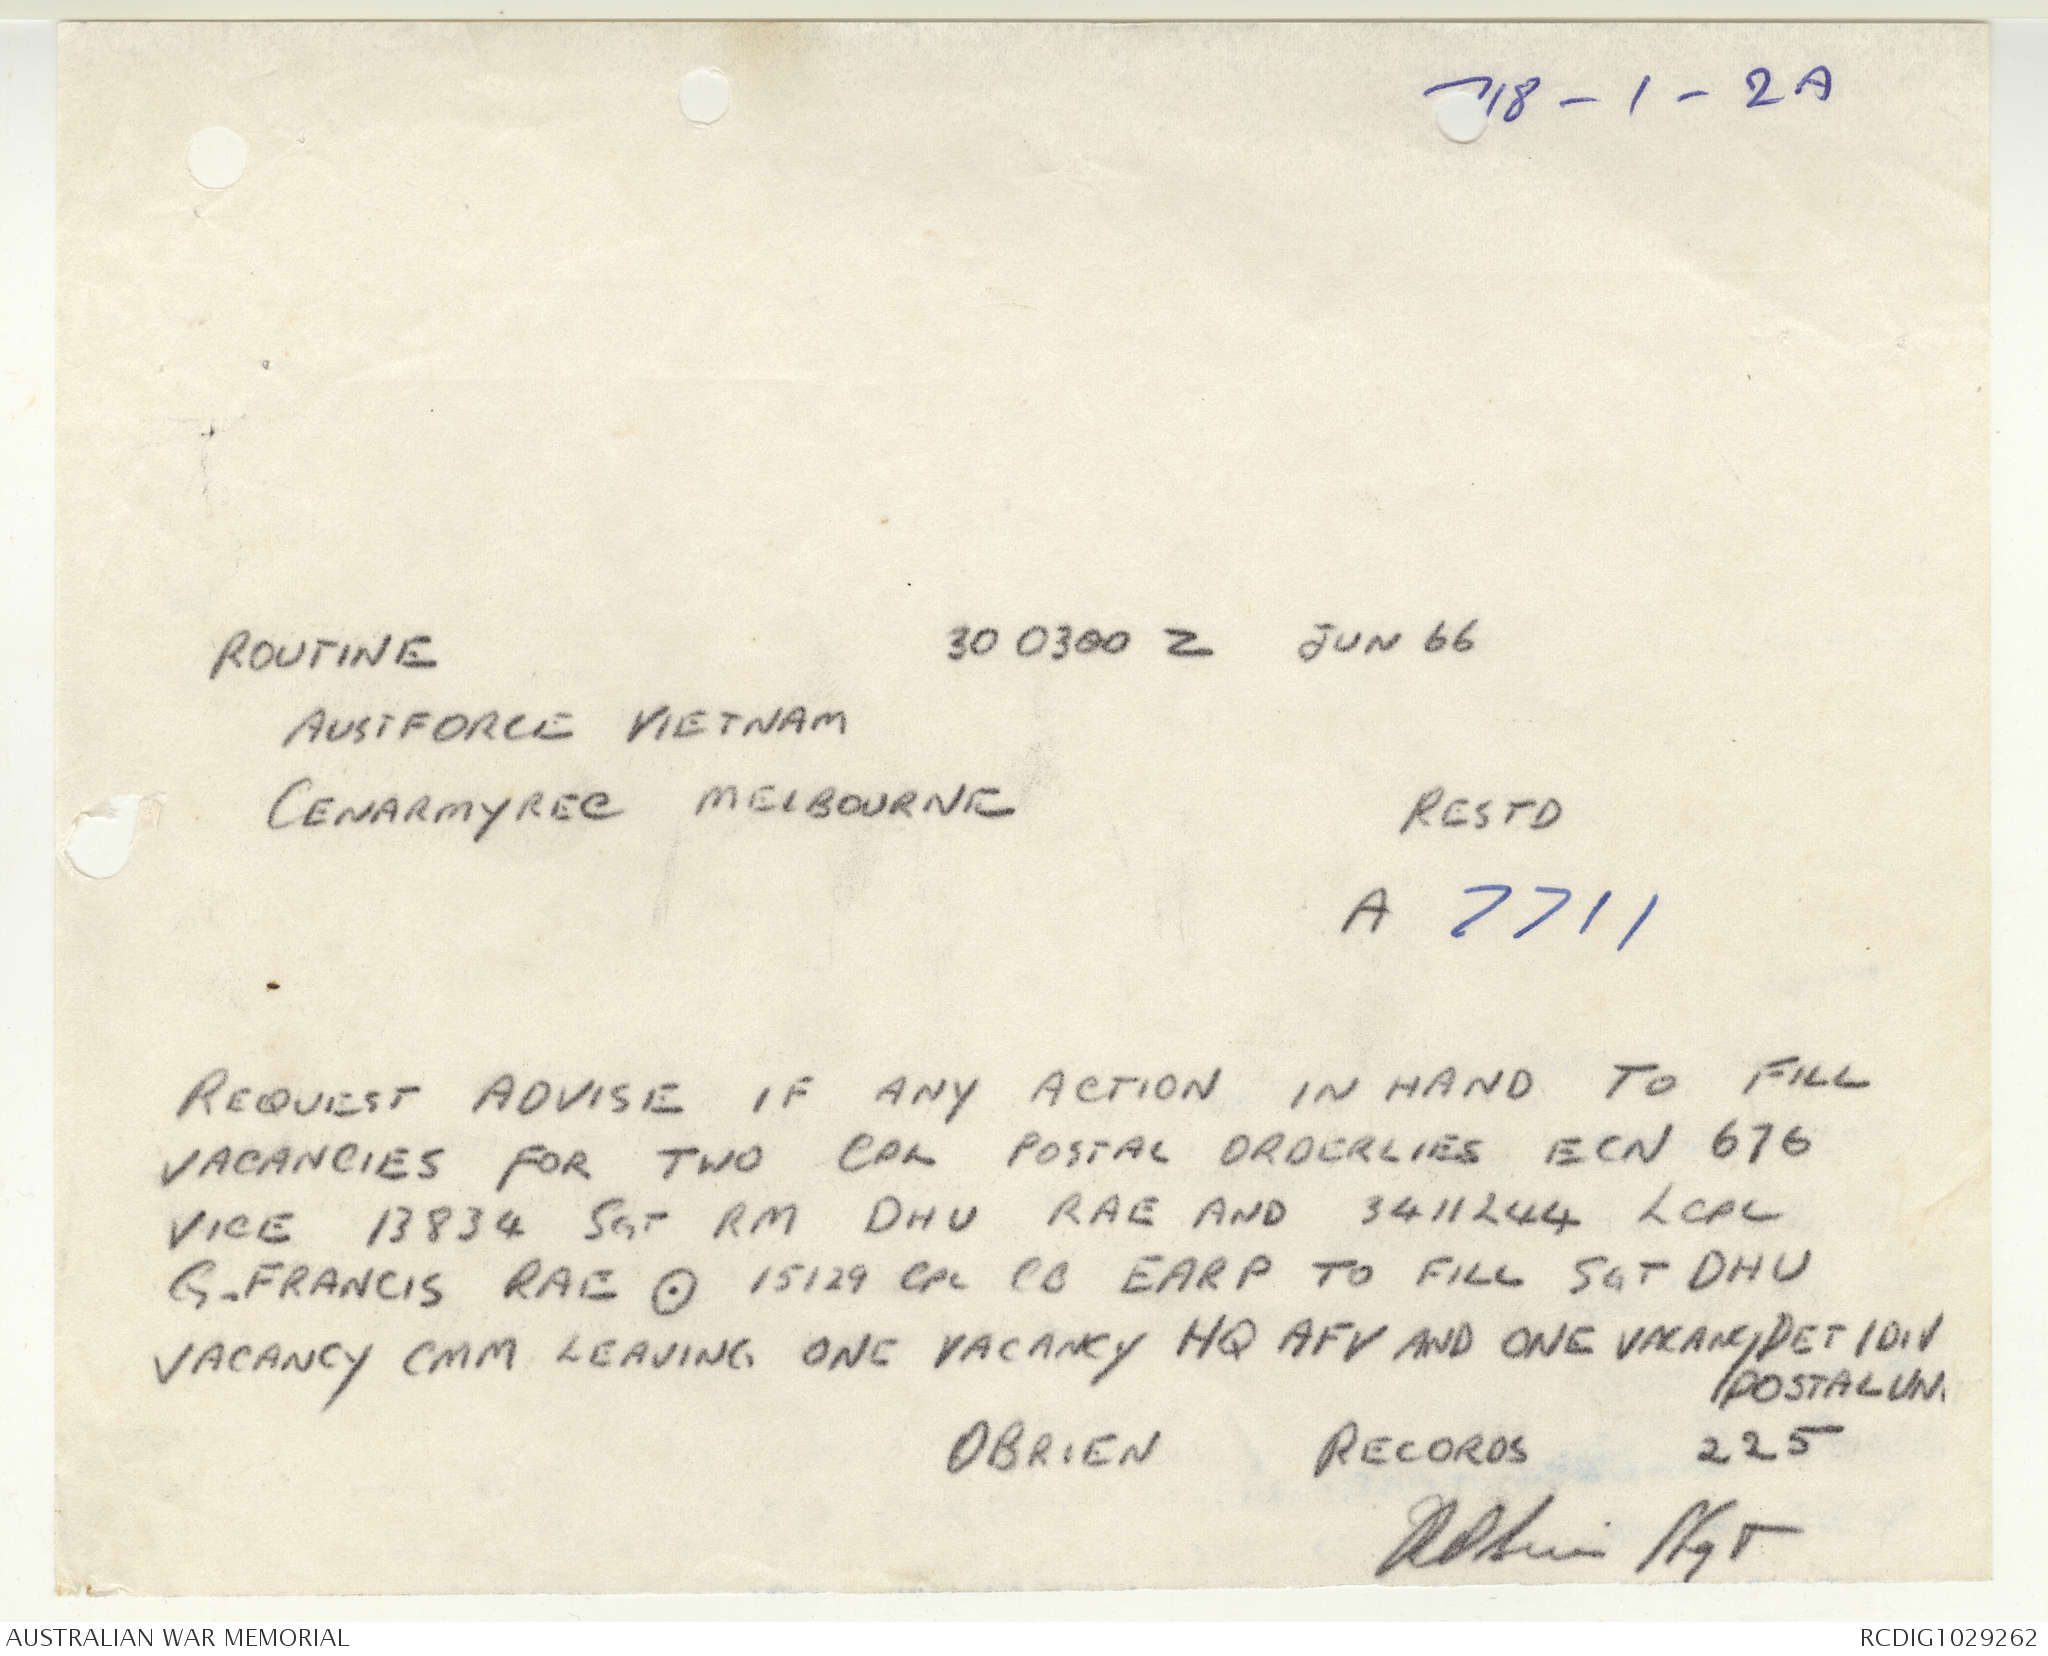 718 - 1 - 2A
ROUTINE 30 0300 Z JUN 66
AUSTFORCE VIETNAM
CENARMYREC MELBOURNE RESTD
A 7711
REQUEST ADVISE IF ANY ACTION IN HAND TO FILL
VACANCIES FOR TWO CPL POSTAL ORDERLIES ECN 676
VICE 13834 SGT RM DHU RAE AND 3411244 LCPL
G. FRANCIS RAE ⊙ 15129 CPL CB EARP TO FILL SGT DHU
VACANCY CMM LEAVING ONE VACANCY HQ AFV AND ONE VACANCY DET 1 DIV
POSTAL UN.
OBRIEN RECORDS 225
Sgt
AUSTRALIAN WAR MEMORIAL RCDIG1029262